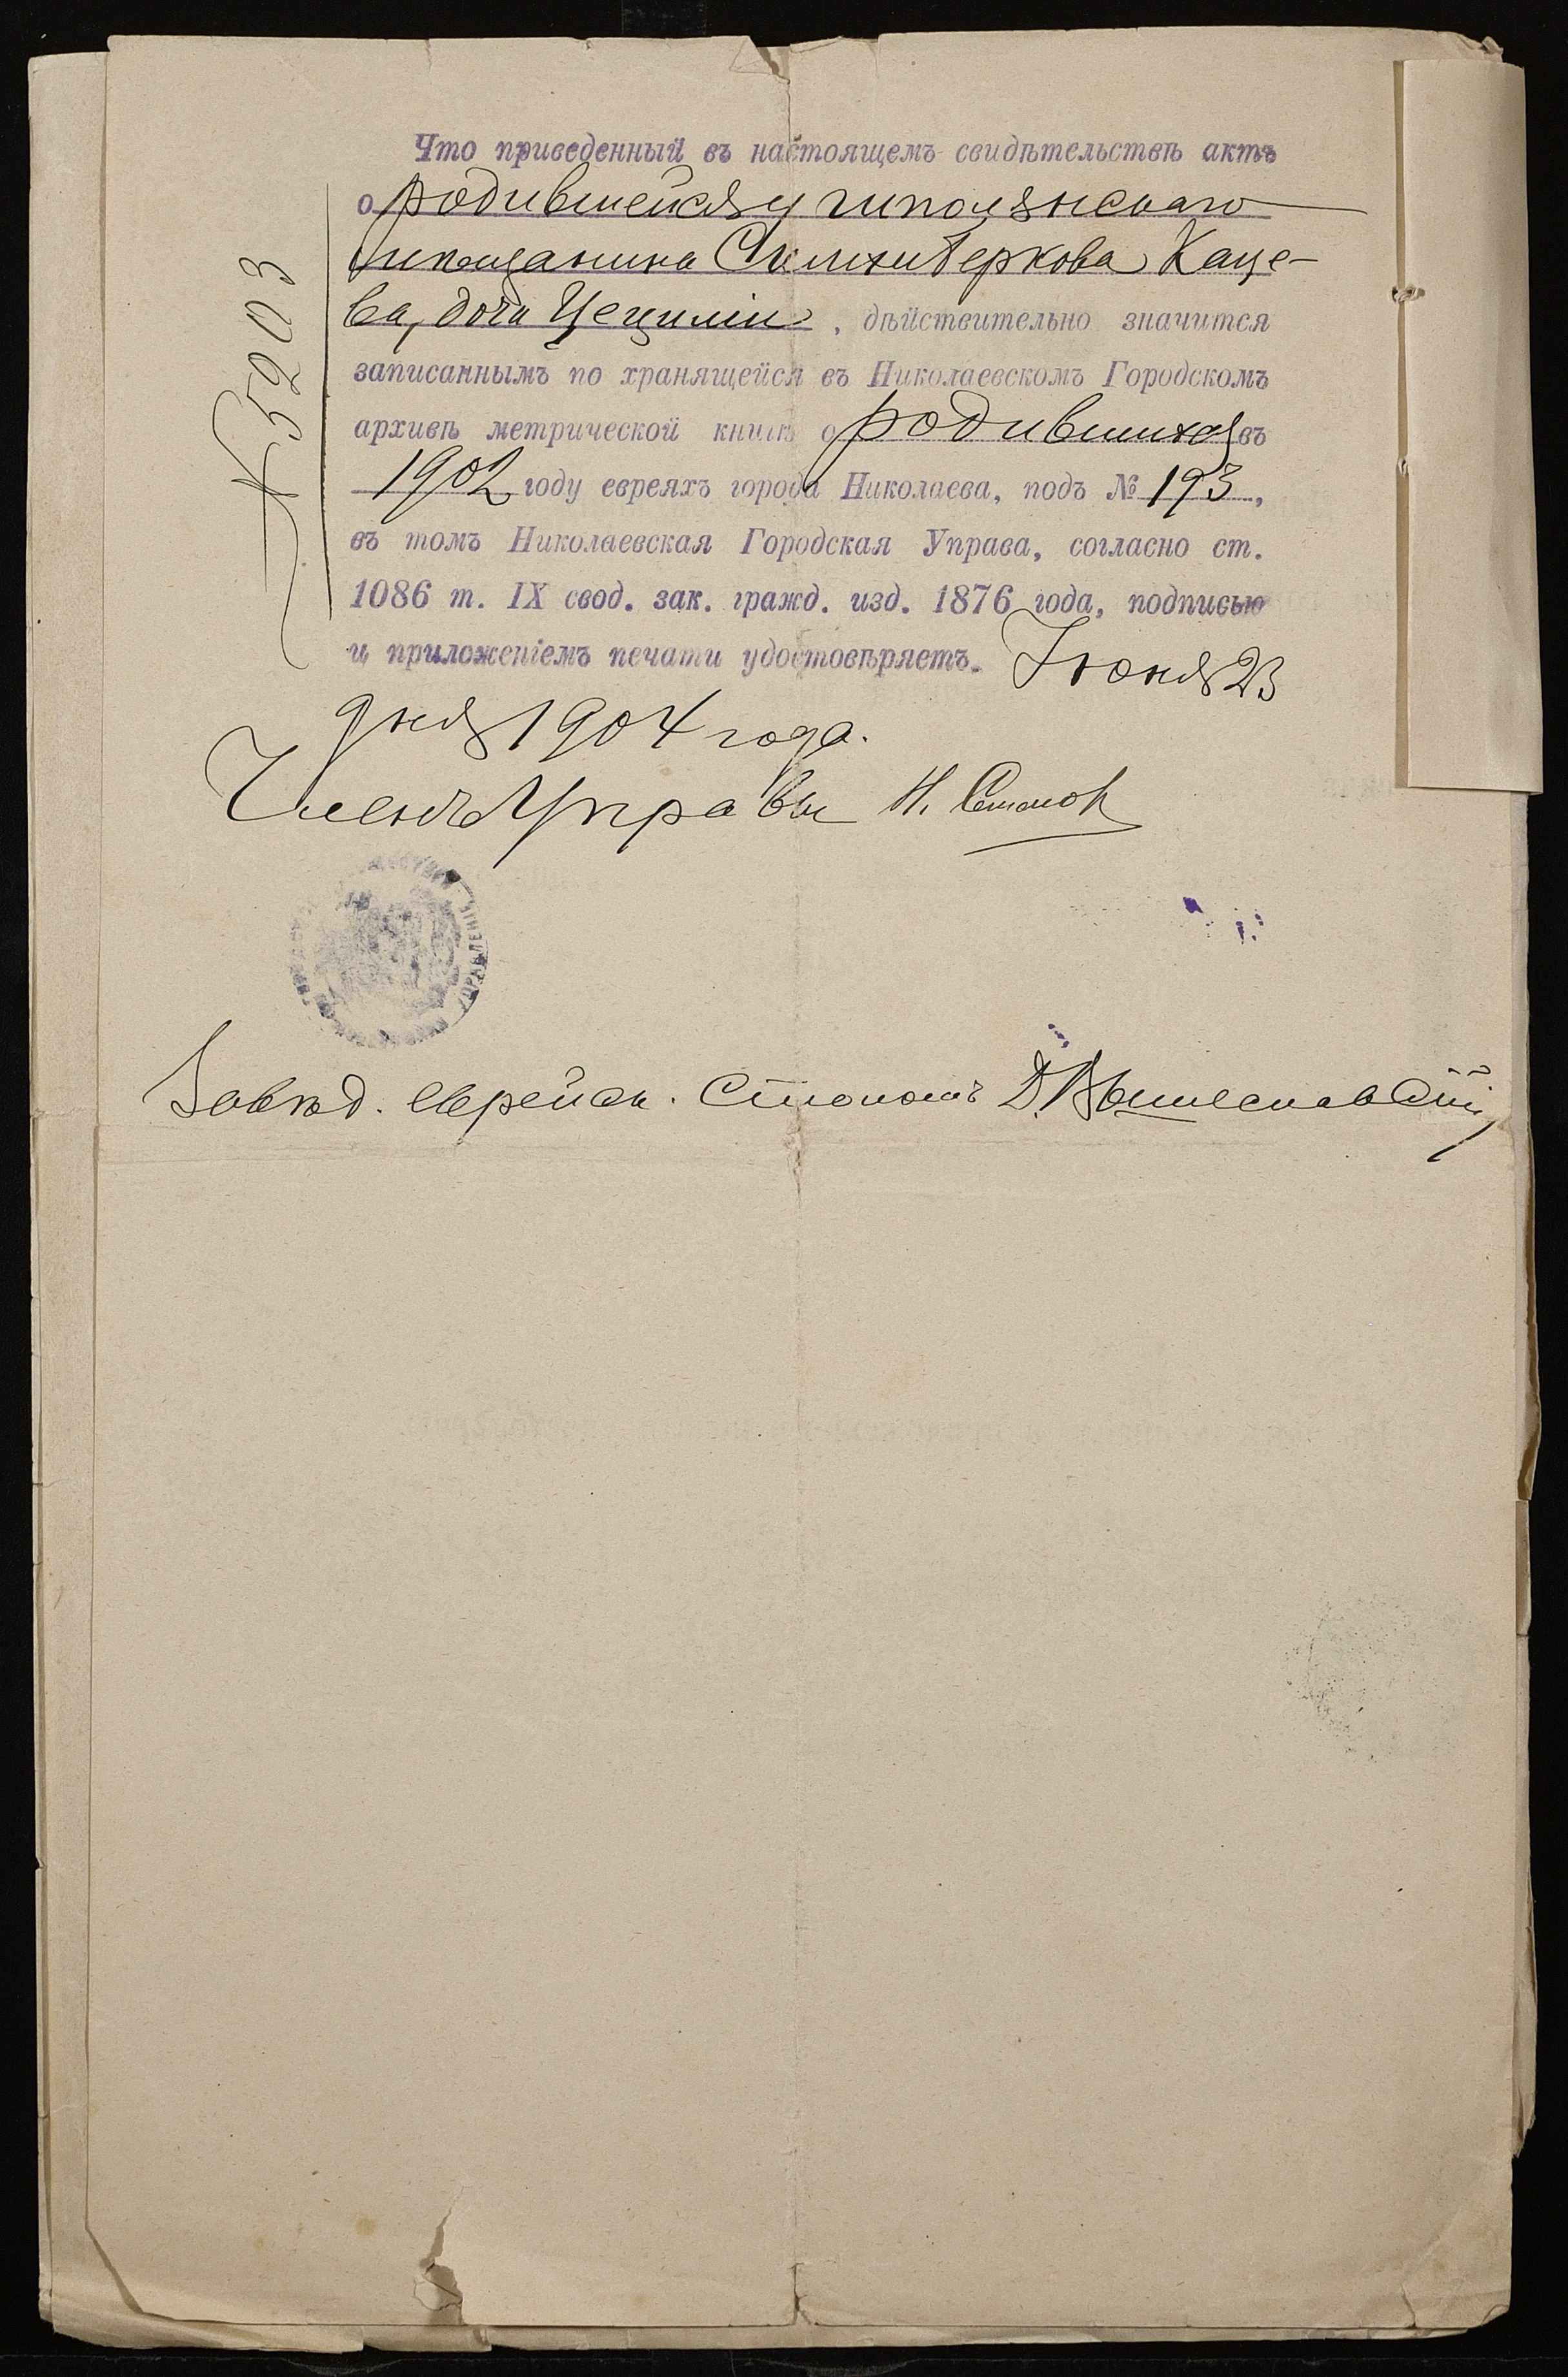 Что приведенный въ настоящемъ свидѣтельствѣ актъ
о родившейся у
мещанина Беркова Каце-
ва, дочи Цециліи, дѣйствительно значится
записаннымъ по хранящейся въ Николаевскомъ Городскомъ
архивѣ метрической книгѣ о родившихся въ
1902 году евреяхъ города Николаева, подъ № 193,
въ томъ Николаевская Городская Управа, согласно ст.
1086 т. IX свод. зак. гражд. изд. 1876 года, подписью
и приложеніемъ печати удостовѣряетъ. Іюня 23
дня 1904 года.
Членъ Управы Н.
№ 5203
УПРАВЛЕНІЕ
Завѣд. еврейск. столомъ Д.